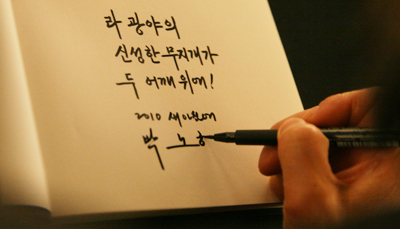 라 광야의
신성한 무지개가
두 어깨 위에!
2010 새 아침에
박 노